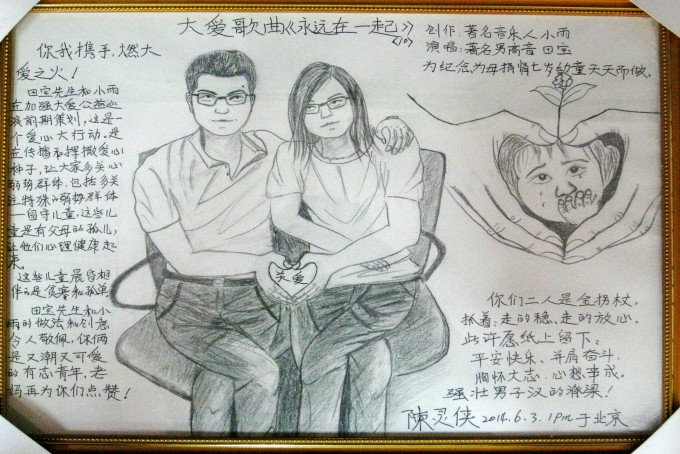 大爱歌曲《永远在一起》
创作:著名音乐人小雨
演唱:著名男高音田宝
为纪念为母捐肾七岁幼童天天而做。
你我携手,燃大
爱之火!
田宝先生和小雨
在加强大爱公益巡
演前期策划,这是一
个爱心大行动。是
在传播和挥撒爱心
种子,让大家多关心
弱势群体,包括多关
注特殊的弱势群体
—留守儿童,这些儿
童是有父母的孤儿,
让他们心理健康起
来。
这些儿童晨昏相
伴的是贫寒和孤单
田宝先生和小
雨的做法和创意
令人敬佩,你俩
是又潮又可爱
的有志青年,老
妈再为你们点赞!
关爱
你们二人是金拐杖,
抓着:走的稳、走的放心。
此许愿纸上留下:
平安快乐、并肩奋斗.
胸怀大志.心想事成。
强壮男子汉的脊梁!
陳灵侠 2014.6.3.1pm于北京